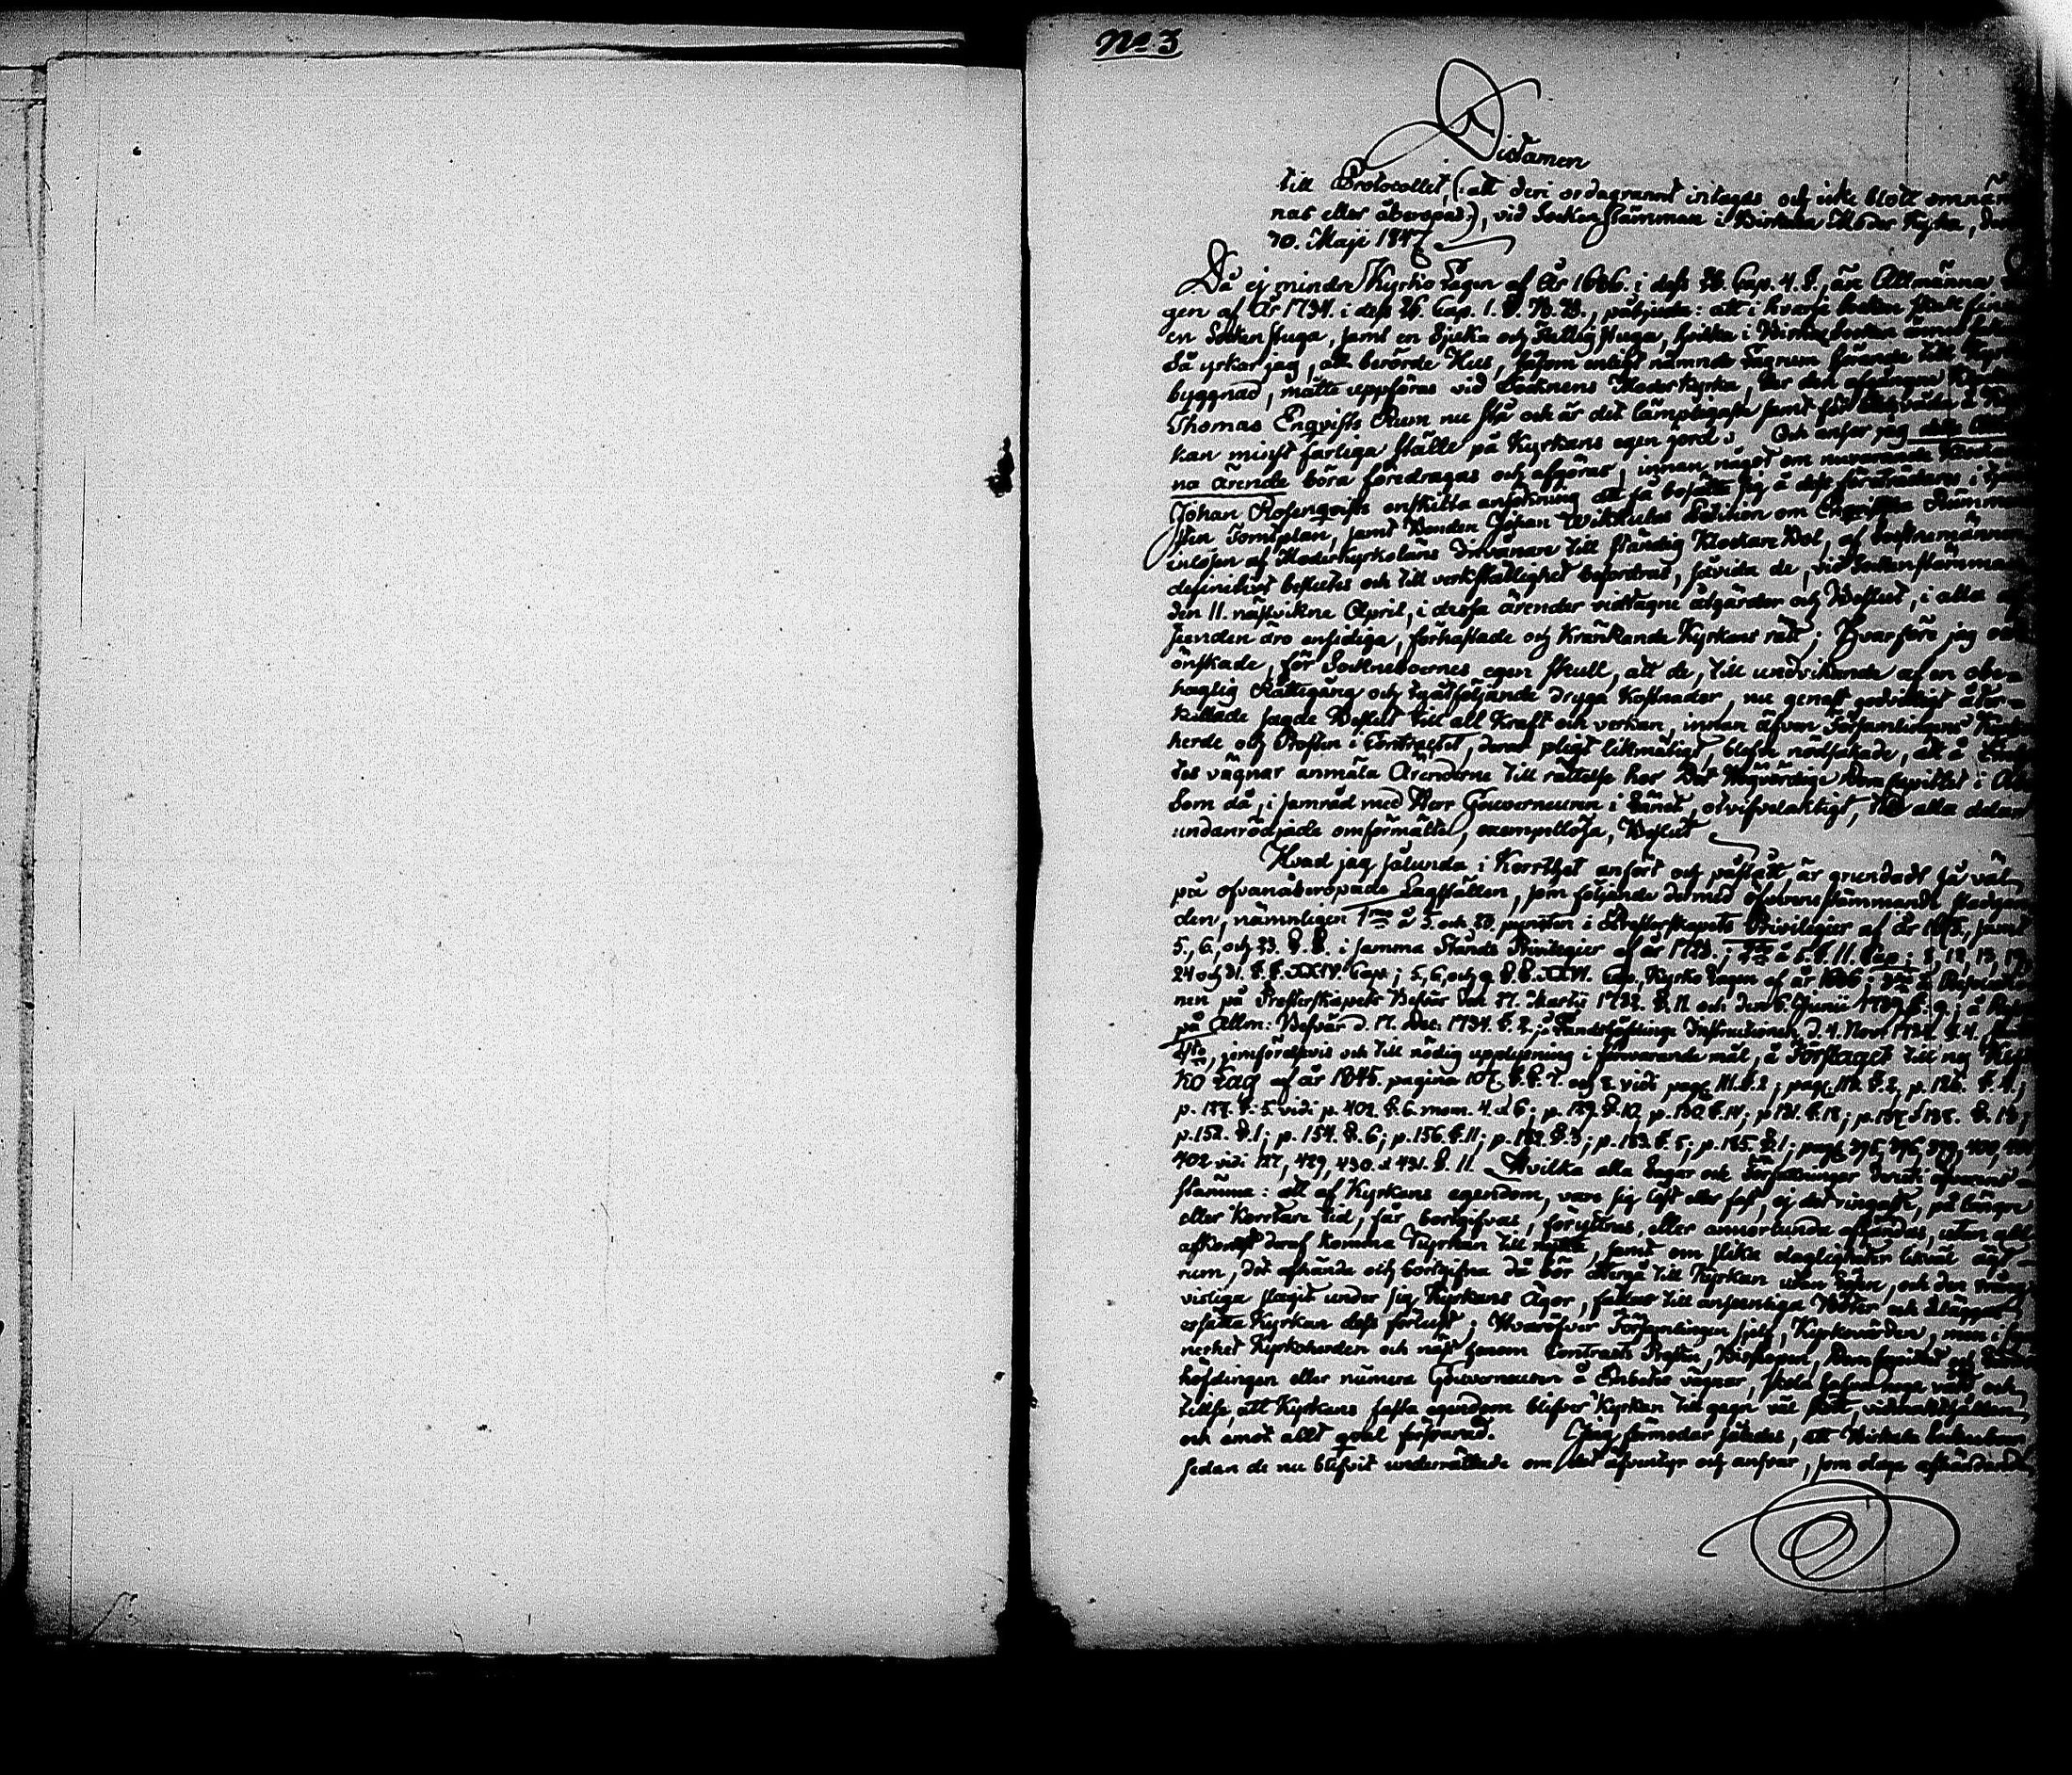 No 3
Dictamen
till Protocollet, (: att deri ordagrannt intagas och icke blott omnäm
nas eller åberopas:), vid Sockenstämman i Birkala Moder Kyrka, den
30. Maji 1847.
Då ej mindre Kyrko Lagen af År 1686. i dess 26. Cap. 4. §., än Allmänna
gen af År 1734. i dess 26. Cap. 1. §. B. B., påbjuda: att i hvarje Socken skall finnas
en Sockenstuga, samt en Sjuka och Fattigstuga, hvilka i Birkala Socken ännu
Så yrkar jag, att berörde Hus, såsom enligt nämnde Lagrum hörande till Kyrko
byggnad, måtte uppföras vid Socknens Moderkyrka, der den afgångne
Thomas Enqvists Rum nu stå och är det lämpligaste samt för
kan minst farliga ställe på Kyrkans egen jord. Och anser jag detta
na ärende böra föredragas och afgöras, innan något om nuvarande
Johan Rosenqvists enskilta ansökning att få bosätta sig å dess företrädares i
sten Tomtplan, samt Bonden Johan Petition om Enqvistska Rummens
inlösen af Moderkyrkolans Invånare till ständig Klockare Bol, af Socknemännen
definitivt beslutes och till verkställighet befordras, såvida de, vid Sockenstämman
den 11. nästvikne April, i dessa ärender vidtagne åtgärder och Beslut, i alla
seenden äro ensidiga, förhastade och Kränkande Kyrkans rätt; Hvarföre jag
önskade, för Sockneboernes egen skull, att de, till undvikande af en obe-
haglig Rättegång och tyåtföljande dryga Kostnader, nu genast godvilligt åter-
kallade sagde Beslut till all Kraft och verkan, innan äfven Församlingens Kyrko
herde och Prosten i Contractet, deras pligt likmätigt, blefve nödsakade, att å Embe
tes vägnar anmäla Ärenderne till rättelse hos Det Högvördige Dom Capitlet i Åbo
som då, i samråd med Herr Gouverneuren i Länet, otvifvelaktigt, till alla delar
undanrödjade omförmälte, exempellösa, Beslut
Hvad jag sålunda i Korrthet anfört och påstått är grundadt så väl
på ofvanåberopade Lagställen, som följande dermed öfverensstämmande stadgan
den, nämnligen 1mo å 5. och 23. puncten i Presterskapets Privilegier af år 1675., samt
5., 6., och 33. §. §. i samma Stånds Privilegier af år 1723.; 2do å 5. §. 11. Cap.; 8, 12, 13, 19,
24 och 31. §. §. XXIV. Cap.; 5, 6, och 9. §. §. XXVI. Cap. Kyrko Lagen af år 1686; 3tio å Resolutio
nen på Presterskapets Besvär den 27. Martii 1732. §. 11. och den 6. Junii 1739. §. 9.; å Resol
på Allm: Besvär d. 17. Dec. 1734. §. 2.; å Landshöfdinge Instructionen d. 4. Nov. 1734. §. 4. samt
4to, jemförelsevis och till nödig upplysning i förevarande mål, å Förslaget till ny Kyr
ko Lag af år 1845. pagina 107. §. §. 7. och 8. vidi pag. 111. §. 2; pag. 112. §. 2, p. 126. §. 4;
p. 127. §. 5. vidi p. 402. §. 6. mom. 4. å 6; p. 129. §. 12, p. 130. §. 14; p. 131. §. 18; p. 137 å 138. §. 16;
p. 152. §. 1; p. 154. §. 6; p. 156. §. 11; p. 182. §. 3; p. 183. §. 5; p. 185. §. 1; pag. 375, 376, 379, 400,
402 vidi 127, 429, 430. å 431. §. 11. Hvilka alla Lagar och Författningar deruti öfverens-
stämma: att af Kyrkans egendom, vare sig löst eller fast, ej det ringaste, på längre
eller Korrtare tid, får bortgifvas, försträckas, eller annorlunda afhändas, utan all
afkomst deraf komma Kyrkan till nytta, samt om slika olagligheter likväl ägt
rum, det afhände och bortgifne då bör återgå till Kyrkan utan Lösen, och den
visliga slagit under sig Kyrkans ägor, fällas till ansenliga Böter och
ersätta Kyrkan dess förlust; Hvaröfver Församlingen sjelf, Kyrkovärden, men i syn
nerhet Kyrkoherden och näst honom Contracts Prosten, Biskopen, Dom Capitlet och Lands
höfdingen eller numera Gouverneuren å Embetes vägnar, skola hafva noga vård och
tillse, att Kyrkans fasta egendom blifver Kyrkan till gagn väl skött, vidmakthållen
och emot allt qval försvarad. Jag förmodar således, att Birkala Sockneboer
sedan de nu blifvit underrättade om det äfventyr och ansvar, som deras afhändande